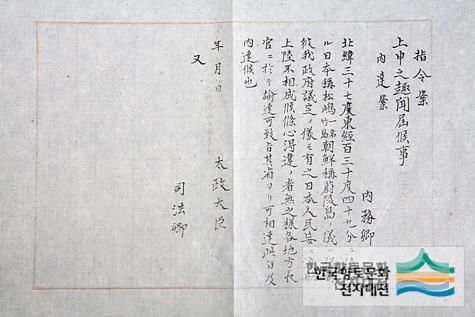 指令案
上申之趣聞届候事
内達案
内務卿
北緯三十七度東経百三十度四十九分ニ
ル日本称松嶋一名竹島朝鮮称蔚陵島ノ儀ハ
彼我政府議定ノ儀モ有之日本人民妄ニ渡航
上陸不相成候條心得違ノ者無之様各地方長
官ニ於テ諭達可致旨其省ヨリ可相達此旨及
内達候也
年月日 太政大臣
又 司法卿
한국향토문화
한국향토문화
전자대전